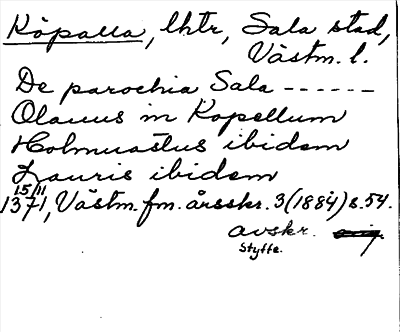 Köpalla, lhtr, Sala stad,
Västm. l.
De parochia Sala ------
Olauus in Kopellum
Holmuastus ibidem
Lauris ibidem
15/11
1371, Västm. fm. årsskr. 3 (1884) s. 54.
avskr.
Styffe.